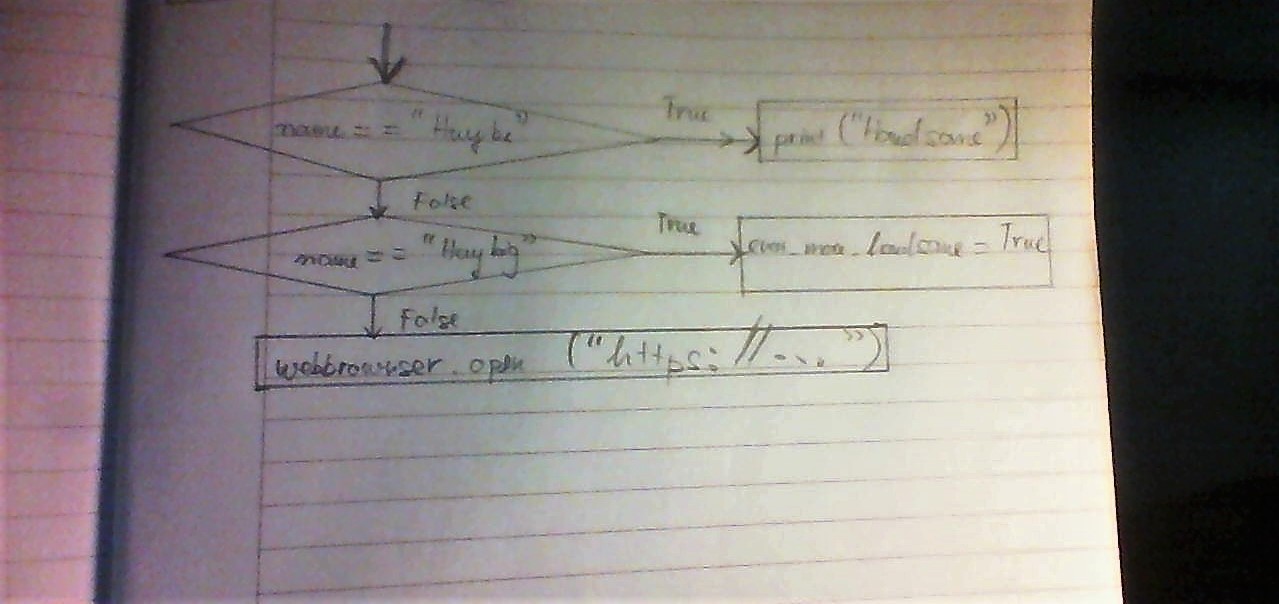 name == "Huy be"
True
print ("Handsome")
False
name == "Huy big"
True
even_more_handsome = True
False
webbrowser.open ("https://...")